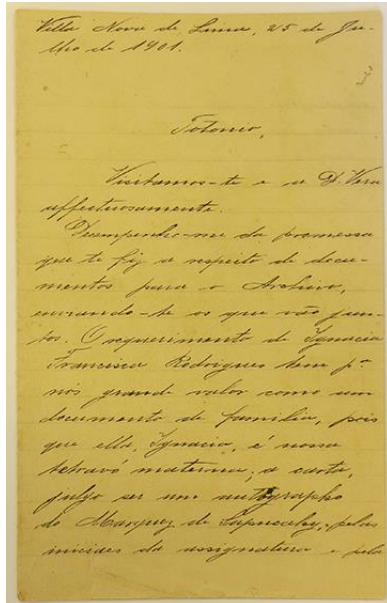 Villa Nova de Lima, 25 de Ju-
lho de 1901.
Totonio,
Visitamos-te e a D. Vera
affectuosamente.
Desempenho-me da promessa
que te fiz a respeito de docu-
mentos para o Archivo,
enviando-te os que vão jun-
tos. O requerimento de Ignacia
Francisca Rodrigues tem pª
nós grande valor como um
documento de familia, pois
que ella, Ignacia, é nossa
tetravó materna; a carta,
julgo ser um autographo
do Marquez de Sapucahy, pelas
iniciaes da assignatura e pela